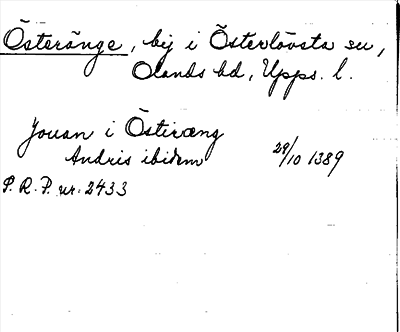 Österänge, by i Österlövsta sn,
Olands hd, Upps. l.
Jouan i Östiræng
Andris ibidem 29/10 1389
S.R.P. nr. 2433